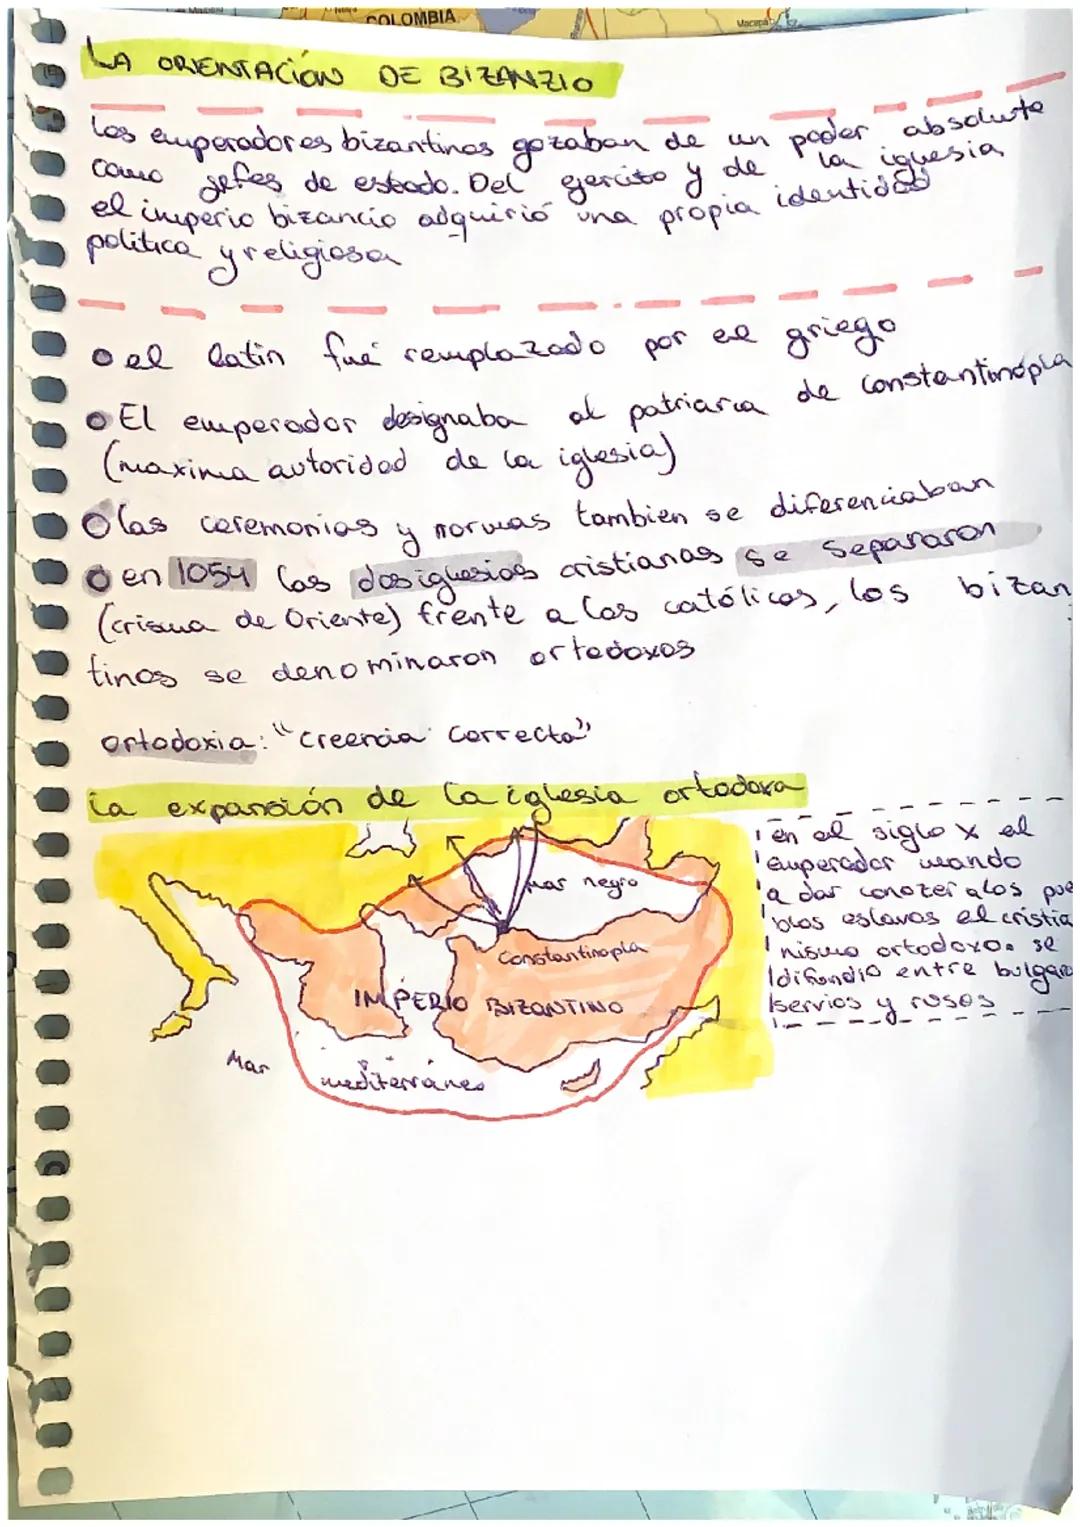 COLOMBIA
Macapá
LA ORIENTACIÓN DE BIZANZIO
los emperadores bizantinos gozaban de un poder absolute
como gefes de estado. Del gercito y de la iglesia
el imperio bizancio adquirió una propia identidad
politica y religiosa
el latin fué remplazado por el griego
El emperador designaba al patriarca de Constantinopla
(maxima autoridad de la iglesia)
las ceremonias y normas tambien se diferenciaban
en 1054 las dos iglesias cristianas se separaron
(crisma de Oriente) frente a los católicos, los bizan
tinos se denominaron ortodoxos
ortodoxia: "creencia correcta"
la expansión de la iglesia ortodoxa
en el siglo X el
emperador mando
a dar conozer a los pue
blos eslavos el cristia
nismo ortodoxo. se
difundio entre bulgaro
servios y rusos
mar negro
Constantinopla
IMPERIO BIZANTINO
Mar mediterráneo